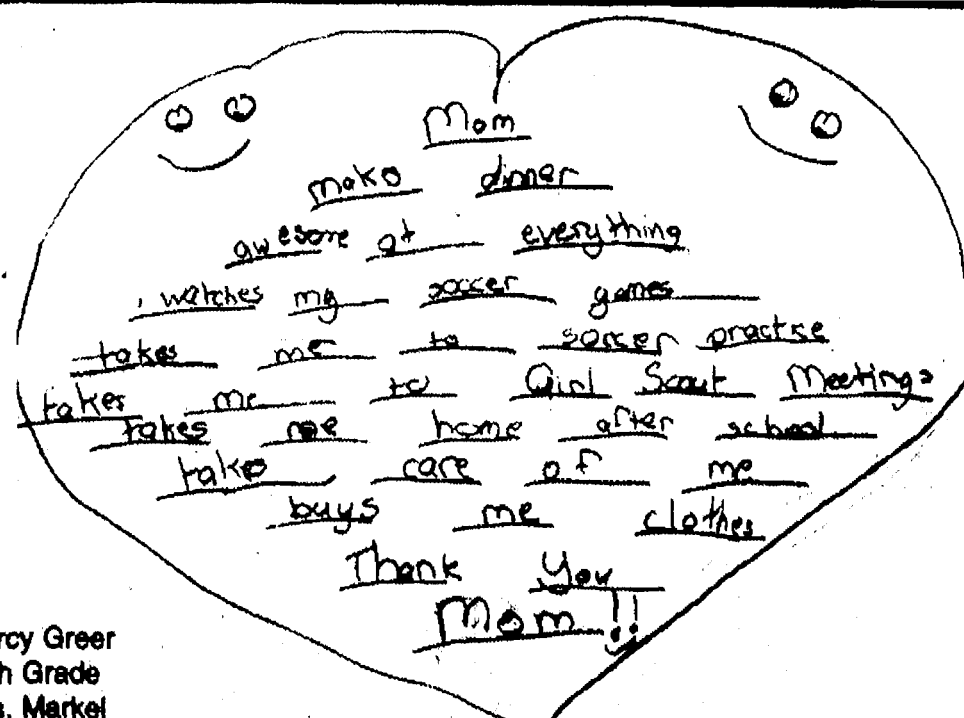 Mom
make dinner
awesome at everything
watches my soccer games
takes me to soccer practise
takes me to Girl Scout Meetings
takes me home after school
takes care of me
buys me clothes
Thank You
Mom!!
rcy Greer
h Grade
s. Markel